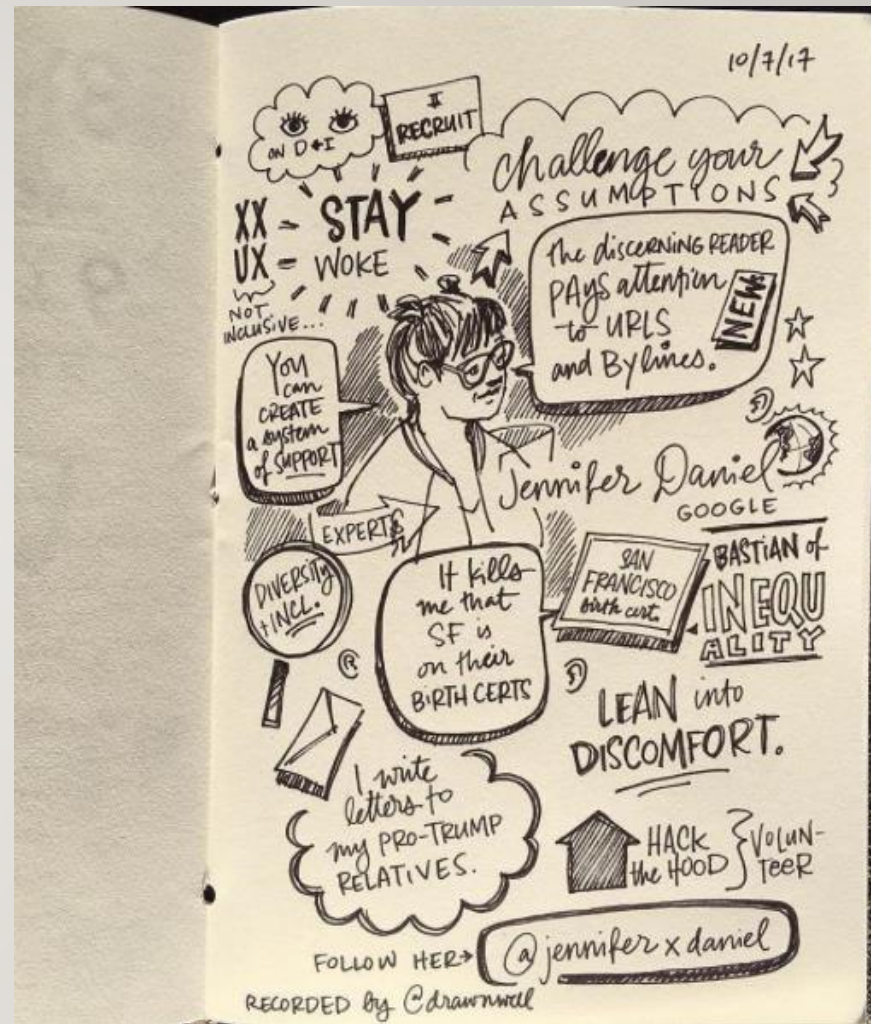 10/7/17
ON D+I
I
RECRUIT
challenge your
ASSUMPTIONS
XX
UX
NOT
INCLUSIVE...
STAY
WOKE
the discerning READER
PAYS attention
to URLS
and Bylines.
NEW
You
can
CREATE
a system
of SUPPORT
Jennifer Daniel
GOOGLE
EXPERTS
DIVERSITY
+ INCL.
It kills
me that
SF is
on their
BIRTH CERTS
SAN
FRANCISCO
birth cert.
BASTIAN of
INEQU
ALITY
LEAN into
DISCOMFORT.
I write
letters to
my PRO-TRUMP
RELATIVES.
HACK
the HOOD
VOLUN-
TEER
FOLLOW HER→ @jenniferxdaniel
RECORDED by @drawnwell